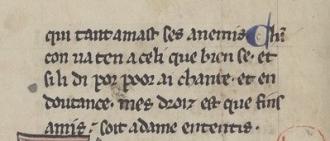 qui tant amast ses anemis. Chan
con va ten a celi que bien se. et
si li di por poor ai chante. et en
doutance. mes droiz est que fins
amis. soit a dame ententis.